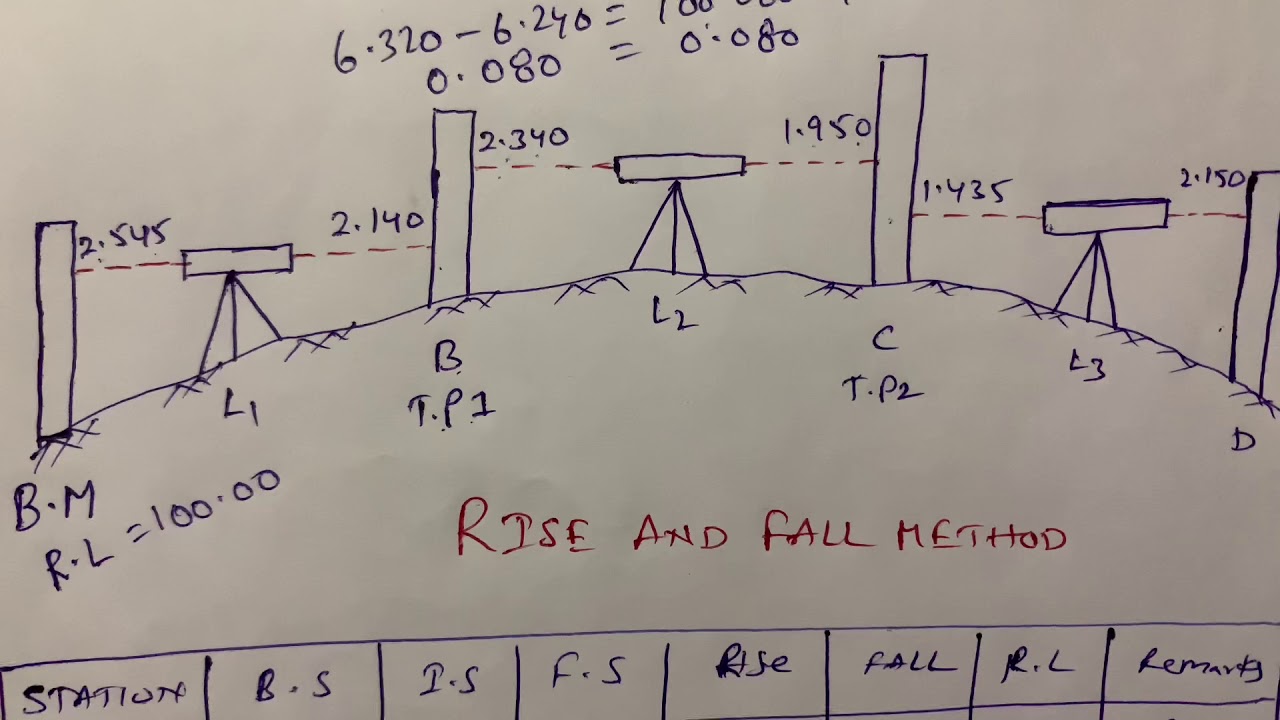 6.320 - 6.240 =
0.080 = 0.080
2.545
2.140
2.340
1.950
1.435
2.150
L1
B
T.P1
L2
C
T.P2
L3
D
B.M
R.L = 100.00
RISE AND FALL METHOD
STATION B.S I.S F.S Rise FALL R.L Remarks